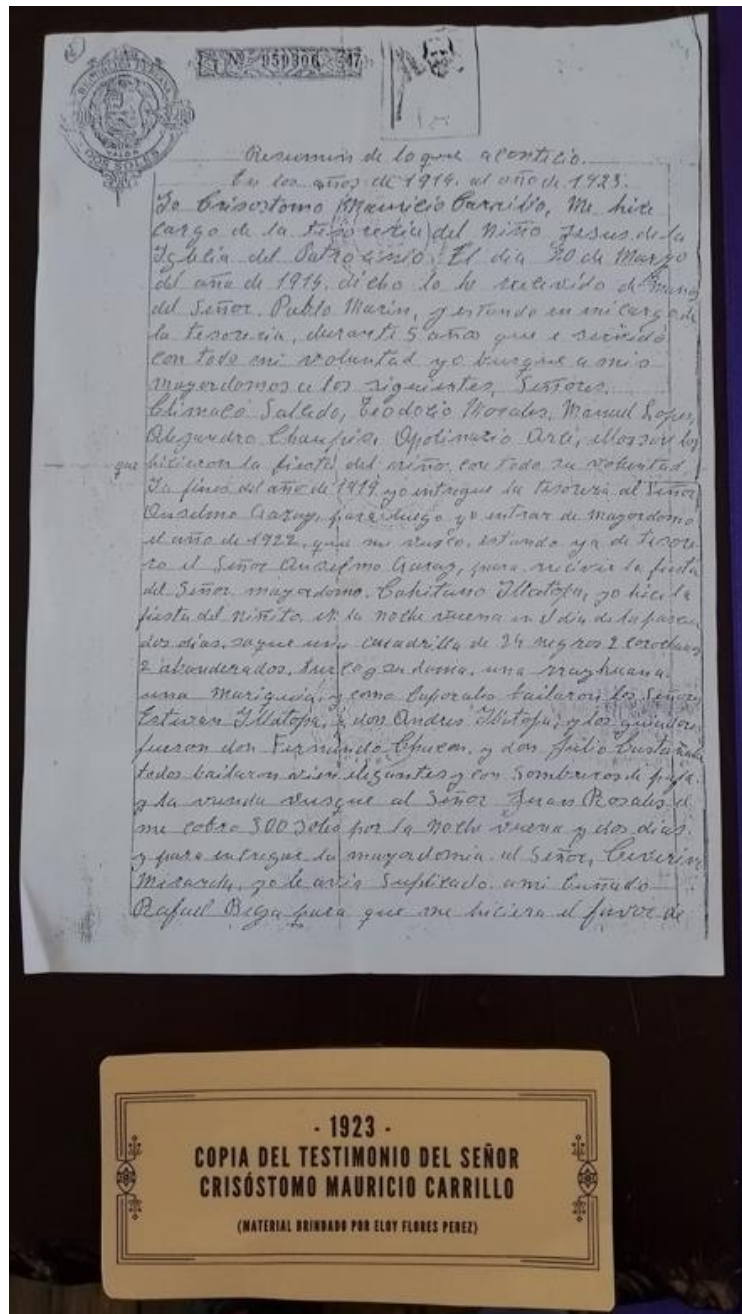 REPUBLICA PERUANA
VALOR
DOS SOLES
Nº 050306 47
Resumen de lo que acontecio.
En los años de 1914. al año de 1923.
Yo Crisostomo Mauricio Carrillo, Me hice
cargo de la tesoreria del Niño Jesus de la
Iglecia del Patrocinio. El dia 20 de Marzo
del año de 1914. dicho lo he recivido de manos
del Señor. Pablo Marin, y estando en mi cargo de
la tesoreria, durante 5 años que e servido
con todo mi voluntad yo busque a mis
mayordomos a los siguientes, Señores.
Climaco Salcedo, Teodocio Morales, Manuel Lopes,
Alejandro Chaupis, Apolinario Arli, ellos son los
que hicieron la fiesta del niño, con todo su voluntad.
Ya fines del año de 1919 yo entregue la tesoreria al Señor
Anselmo Garay, para luego yo entrar de mayordomo
el año de 1922, que me vusco, estando ya de tesore-
ro el Señor Anselmo Garay, para recivir la fiesta
del Señor mayordomo. Cahitano Illatopa, yo hice la
fiesta del Niñito, en la noche vuena en el dia de la pascua
dos dias. saque una cuadrilla de 24 negros 2 corochanos
2 abanderados, turco y su dama, una
una y como Caporales bailaron los Señores
Estevan Illatopa, y don Andres Illatopa, y los guiadores
fueron don Fernando Chucon, y don Julio
todos bailaron vien elegantes y con Sombreros de paja.
y la vanda vusque al Señor Juan Rosales el
me cobro 300 Soles por la noche vuena y dos dias.
y para entregue la mayordomia. al Señor, Ceverino
Miranda, yo le avia Suplicado a mi Cuñado
Rafael Bega para que me hiciera el favor de
- 1923 -
COPIA DEL TESTIMONIO DEL SEÑOR
CRISÓSTOMO MAURICIO CARRILLO
(MATERIAL BRINDADO POR ELOY FLORES PEREZ)